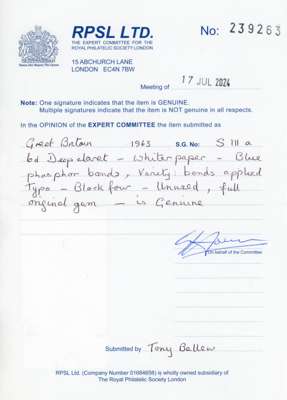 RPSL LTD.
THE EXPERT COMMITTEE FOR THE
ROYAL PHILATELIC SOCIETY LONDON
No: 239263
15 ABCHURCH LANE
LONDON EC4N 7BW
Meeting of 17 JUL 2024
Note: One signature indicates that the item is GENUINE.
Multiple signatures indicate that the item is NOT genuine in all respects.
In the OPINION of the EXPERT COMMITTEE the item submitted as
Great Britain 1963 S.G. No: S 111 a
6d Deep claret - White paper - Blue
phosphor bands, Variety: bands applied
typo - Block four - Unused, full
original gum - is Genuine
On behalf of the Committee
Submitted by Tony Bellew
RPSL Ltd. (Company Number 01684658) is wholly owned subsidiary of
The Royal Philatelic Society London